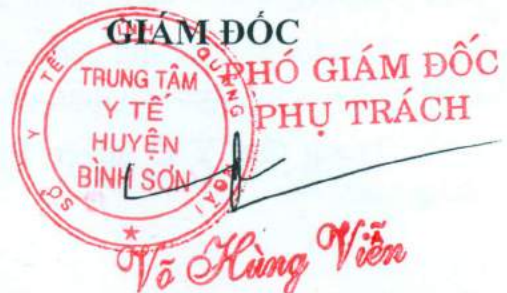 GIÁM ĐỐC
PHÓ GIÁM ĐỐC
PHỤ TRÁCH
SỞ Y TẾ TỈNH QUẢNG NGÃI
TRUNG TÂM
Y TẾ
HUYỆN
BÌNH SƠN
Võ Hùng Viễn